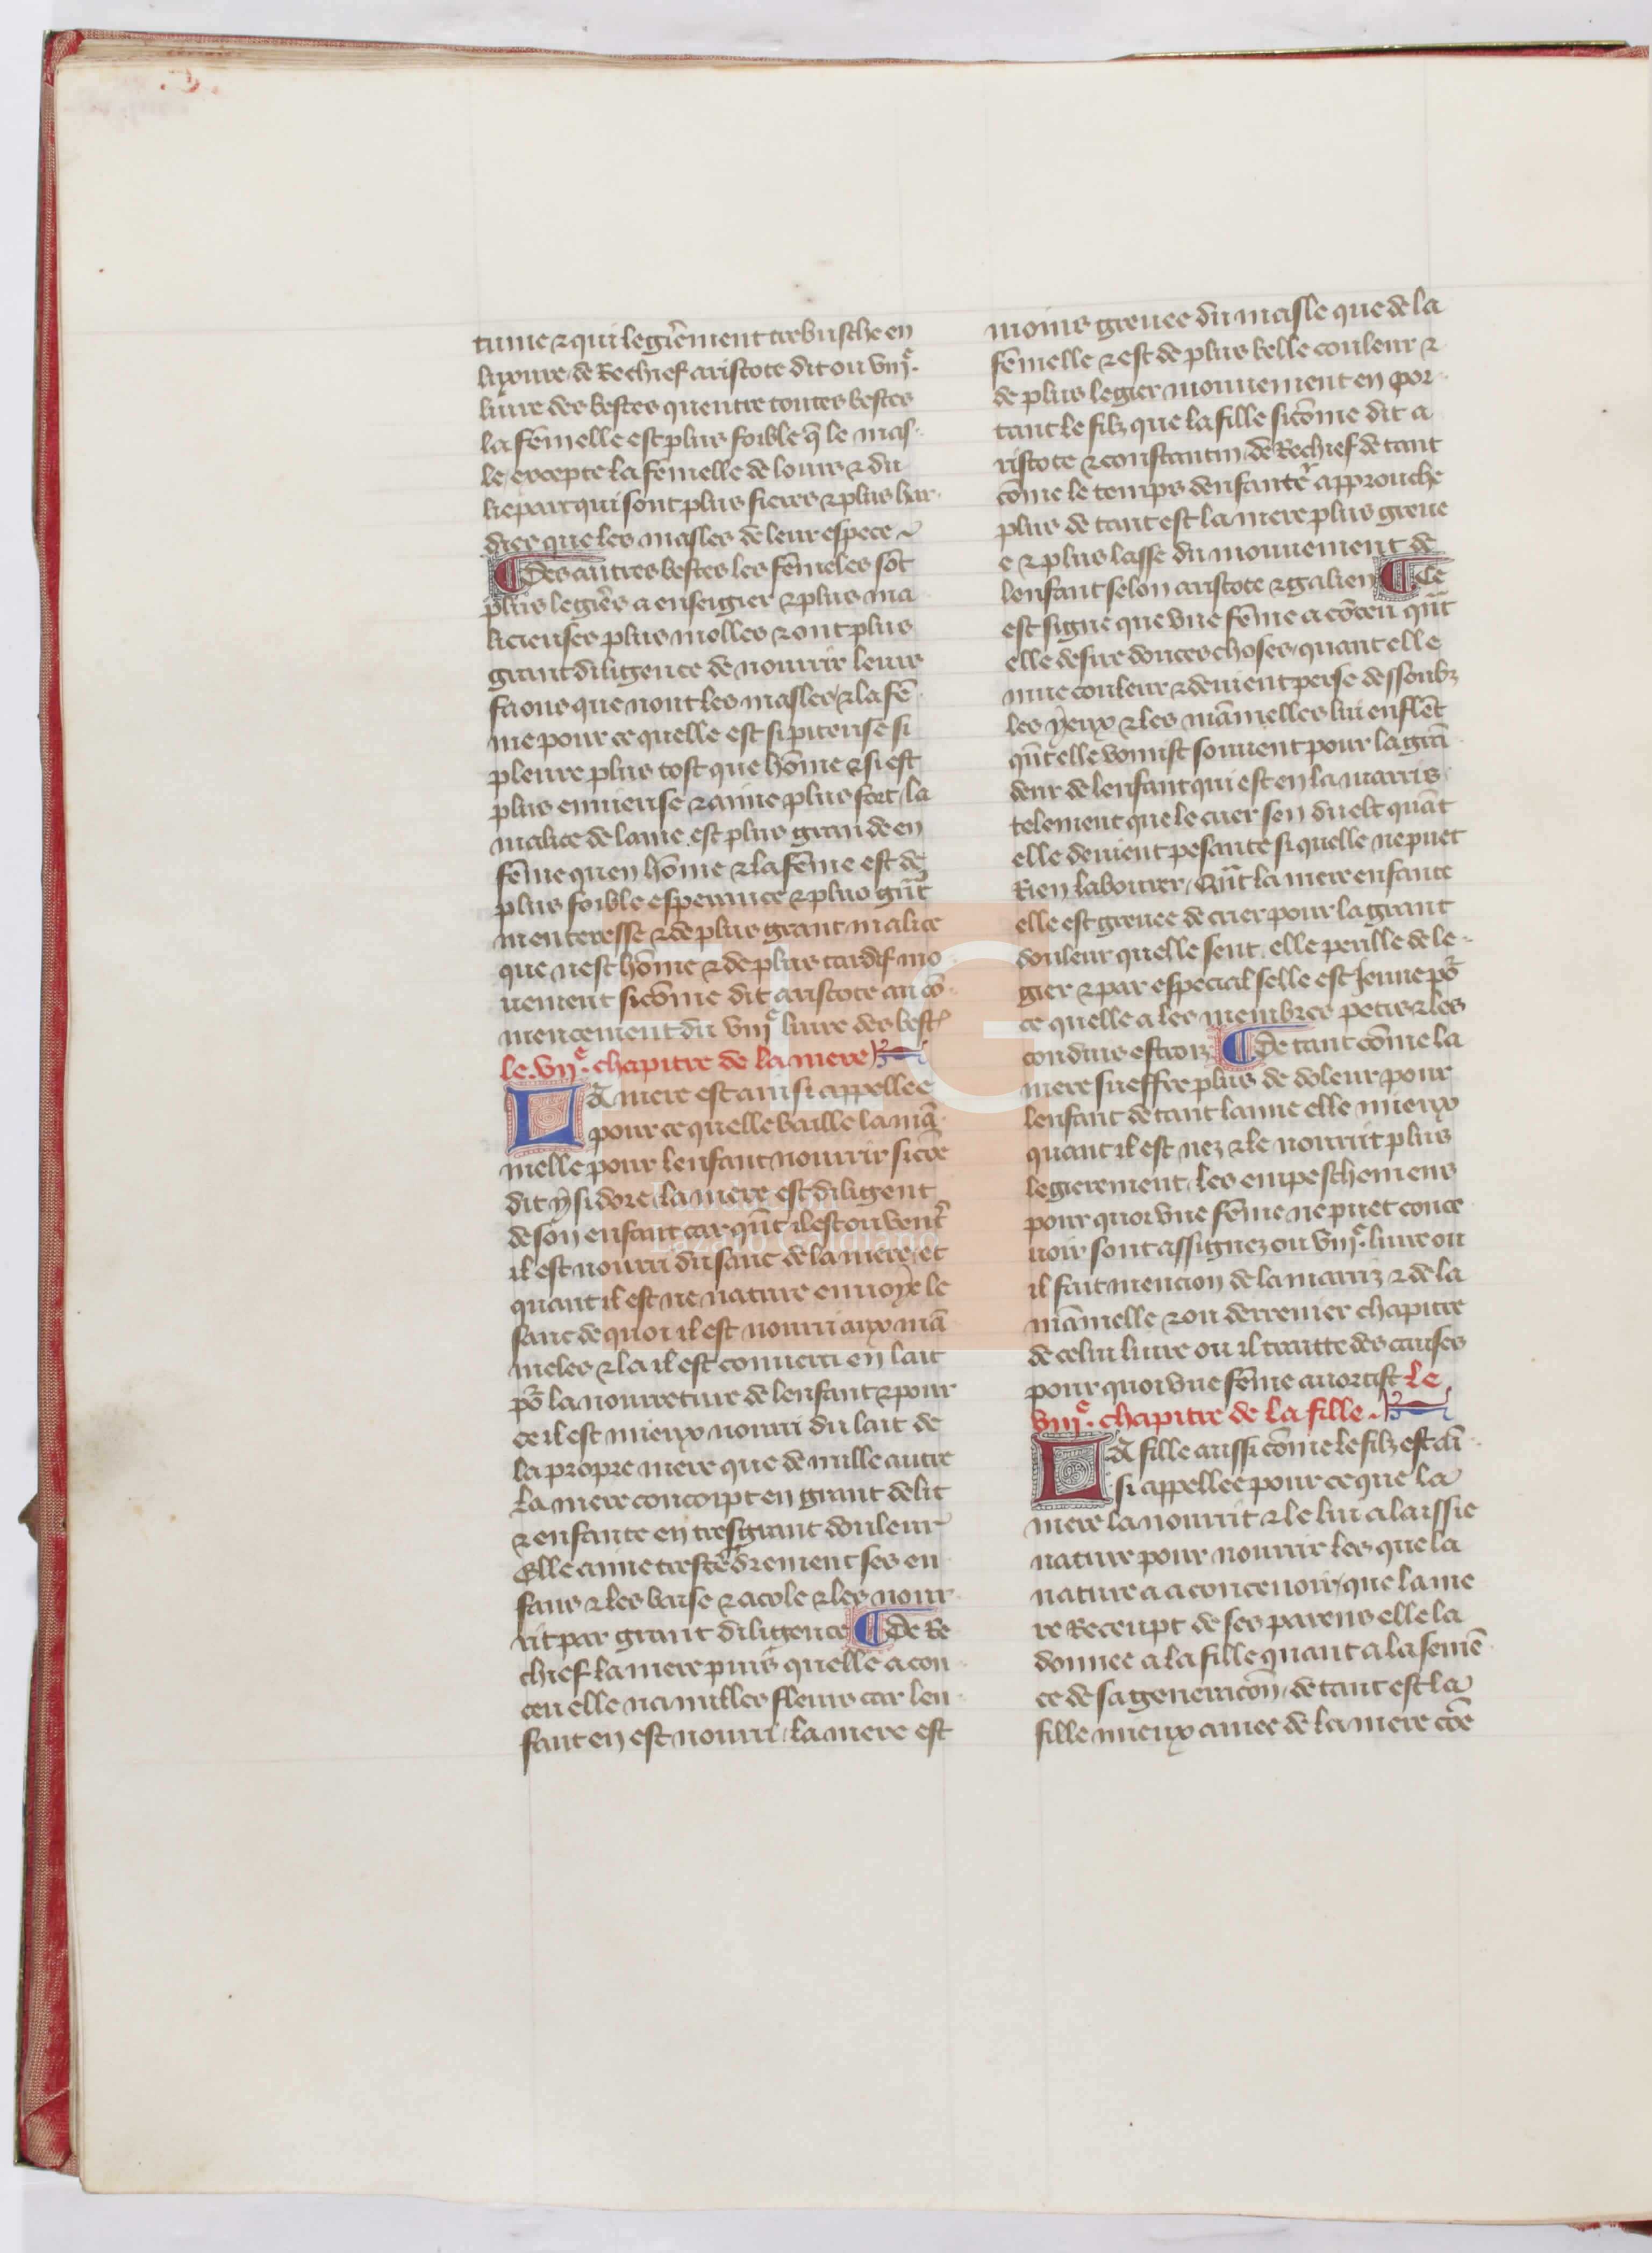 tume ⁊ qui legierment trebusche en
luxure. de Rechief aristote dit ou viijᵉ.
liure des bestes quentre toutes bestes
la fēmelle est plus foible q̄ le mas-
le, excepte la femelle de lours ⁊ du
liepart qui sont plus fieres ⁊ plus har-
dies que les masles de leur espece ~
¶ Des autres bestes les fēmeles sōt
plus legie᷑s a enseigier ⁊ plus ma
licieuses plus molles ⁊ ont plus
grant diligence de nourrir leurs
faons que nont les masles, ⁊ la fē-
me pour ce quelle est si piteuse si
pleure plus tost que hōme ⁊ si est
plus enuieuse ⁊ aime plus fort, la
malice de lame est plus grande en
fēme quen hōme ⁊ la fēme est de
plus foible esperance ⁊ plus gūt
menteresse ⁊ de plus grant malice
que nest hōme ⁊ de plus tardif mo-
uement sicōme dit aristote au cō-
mencement du viijᵉ liure des best᷑
le .vijᵉ. chapitre de la mere
La mere est ainsi appellee
pour ce quelle baille la mā-
melle pour lenfant nourrir sicōe
dit ysidore, la mere est diligent
de son enfant car qūt il est ou vent᷑
il est nourri du sanc de la mere, et
quant il est ne nature enuoye le
sanc de quoi il est nourri aux mā
meles ⁊ la il est conuerti en lait
po᷑ la nourreture de lenfant ⁊ pour
ce il est mieux nourri du lait de
la propre mere que de nulle autre
La mere concoipt en grant delit
⁊ enfante en tresgrant douleur
Elle aime trestēdrement ses en-
fans ⁊ les baise ⁊ acole ⁊ les nour-
rit par grant diligence ¶ De Re
chief la mere puis quelle a con-
ceu elle na nulles fleurs car len-
fant en est nourri, la mere est
moins greuee du masle que de la
fēmelle ⁊ est de plus belle couleur ⁊
de plus legier mouuement en por-
tant le filz que la fille sicōme dit a
ristote ⁊ constantin, de Rechief de tant
cōme le temps denfant᷑ approuche
plus de tant est la mere plus greue
e ⁊ plus lasse du mouuement de
lenfant selon aristote ⁊ galien ¶ Ce
est signe que vne fēme a cōceu qūt
elle desire douces choses, quant elle
mue couleur ⁊ deuient perse dessoubz
les yeux ⁊ les māmelles lui enflēt
qūt elle vomist souuent pour la grā-
deur de lenfant qui est en la marris
telement que le cuer sen duelt quāt
elle deuient pesante si quelle ne puet
Rien labourer, Qūt la mere enfante
elle est greuee de crier pour la grant
douleur quelle sent, elle perille de le-
gier ⁊ par especial selle est Jenne po᷑
ce quelle a les membres petis ⁊ les
conduis estroiz ¶ De tant cōme la
mere sueffre plus de doleur pour
lenfant de tant laime elle mieux
quant il est nez ⁊ le nourrit plus
legierement, les empeschemens
pour quoi vne fēme ne puet conce
uoir sont assignez ou viijᵉ. liure ou
il fait mencion de la marriz ⁊ de la
māmelle ⁊ ou derrenier chapitre
de celui liure ou il traitte des causes
pour quoi vne fēme auortist Le
viijᵉ. chapitre de la fille.
La fille aussi cōme le filz est ai-
si appellee pour ce que la
mere la nourrit ⁊ le lui a laissie
nature pour nourrir les que la
nature a a conceuoir, que la me
re Receupt de ses parens elle la
donnee a la fille quant a la semē-
ce de sa generacōn, de tant est la
fille mieux amee de la mere cōe